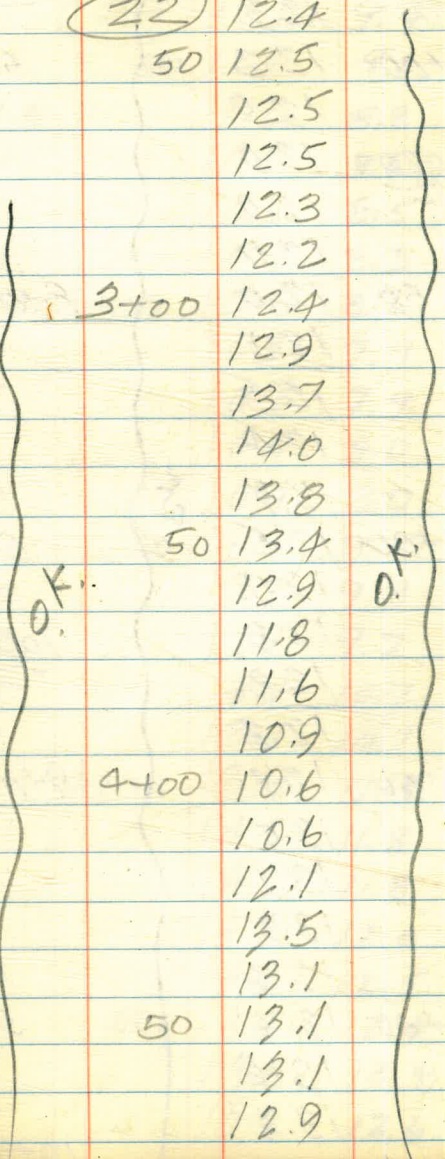 22 12.4
50 12.5
12.5
12.5
12.3
12.2
3+00 12.4
12.9
13.7
14.0
13.8
50 13.4
O.K. 12.9 O.K.
11.8
11.6
10.9
4+00 10.6
10.6
12.1
13.5
13.1
50 13.1
13.1
12.9